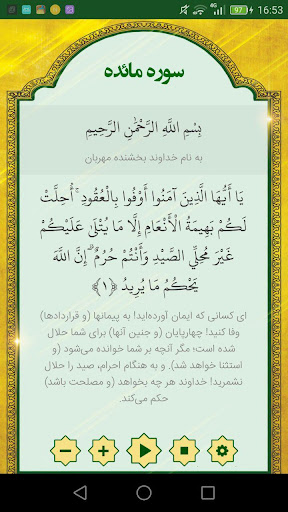 4G 97 16:53
سوره مائده
بِسْمِ اللَّهِ الرَّحْمَٰنِ الرَّحِيمِ
به نام خداوند بخشنده مهربان
يَا أَيُّهَا الَّذِينَ آمَنُوا أَوْفُوا بِالْعُقُودِ ۚ أُحِلَّتْ
لَكُمْ بَهِيمَةُ الْأَنْعَامِ إِلَّا مَا يُتْلَىٰ عَلَيْكُمْ
غَيْرَ مُحِلِّي الصَّيْدِ وَأَنْتُمْ حُرُمٌ ۗ إِنَّ اللَّهَ
يَحْكُمُ مَا يُرِيدُ ﴿١﴾
ای کسانی که ایمان آورده‌اید! به پیمانها (و قراردادها)
وفا کنید! چهارپایان (و جنین آنها) برای شما حلال
شده است؛ مگر آنچه بر شما خوانده می‌شود (و
استثنا خواهد شد). و به هنگام احرام، صید را حلال
نشمرید! خداوند هر چه بخواهد (و مصلحت باشد)
حکم می‌کند.